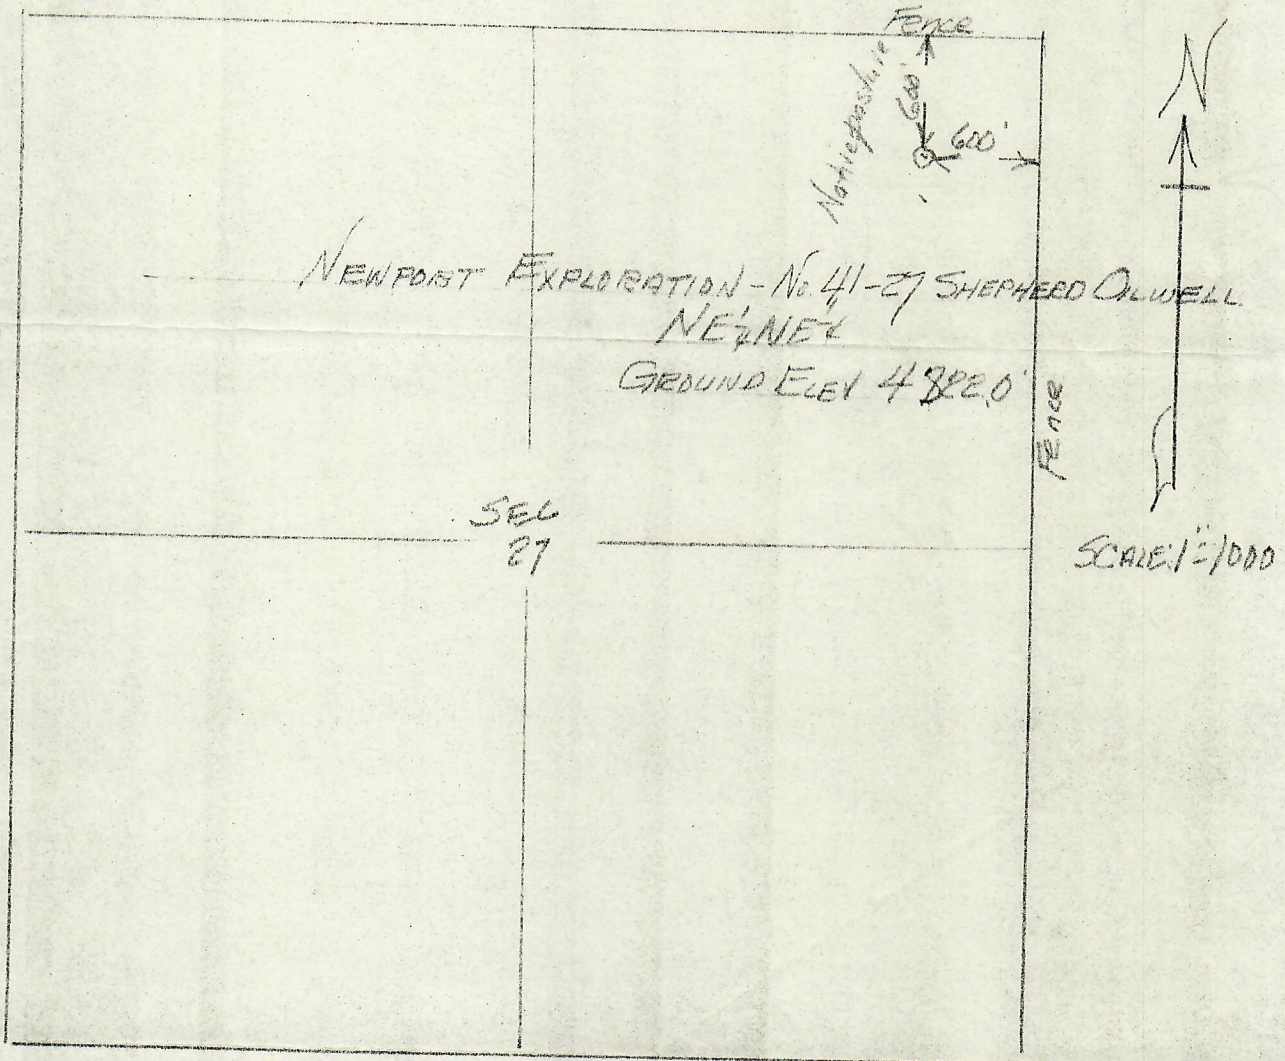 Fence
N
Native pasture
600'
600'
NEWPORT EXPLORATION - No. 41-27 SHEPHERD OILWELL
NE¼NE¼
GROUND ELEV
Fence
SEC
27
SCALE: 1"=1000